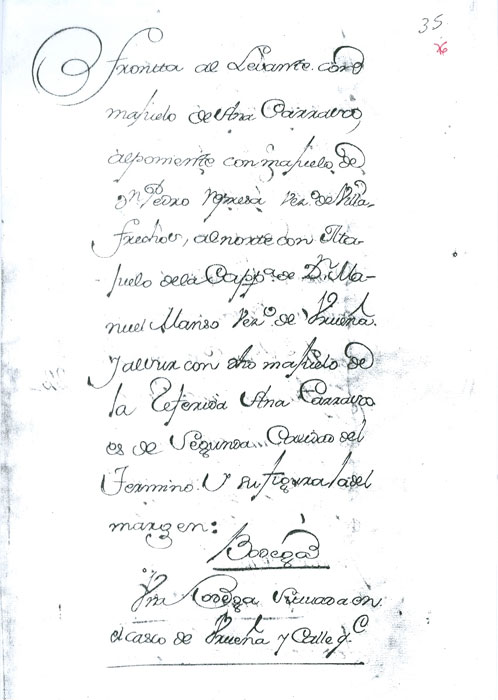 35
frontta al Levante con
majuelo de Ana Carrasco,
alponiente con majuelo de
Dn. Pedro Vezº de Villa-
frechos, alnorte con Ma-
juelo dela Cappª. de Dn. Ma-
nuel Alanso Vezº. de Vrueña.
Y alsur con dho majuelo de
la Referida Ana Carrasco
es de Segunda Calidad del
Termino. Y su figura la del
margen:
Bodega
Vna Bodega Situada en
el casco de Vrueña y Calle q.e